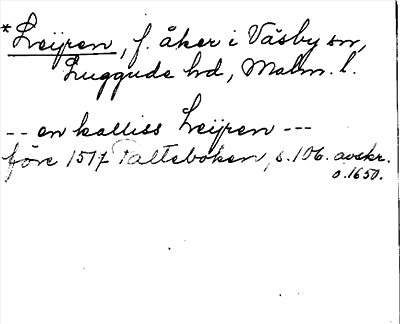 *Leÿren, f. åker i Väsby sn,
Luggude hd, Malm. l.
-- en kalliss Leÿren ---
före 1517 Palteboken, s. 106. avskr.
o. 1650.